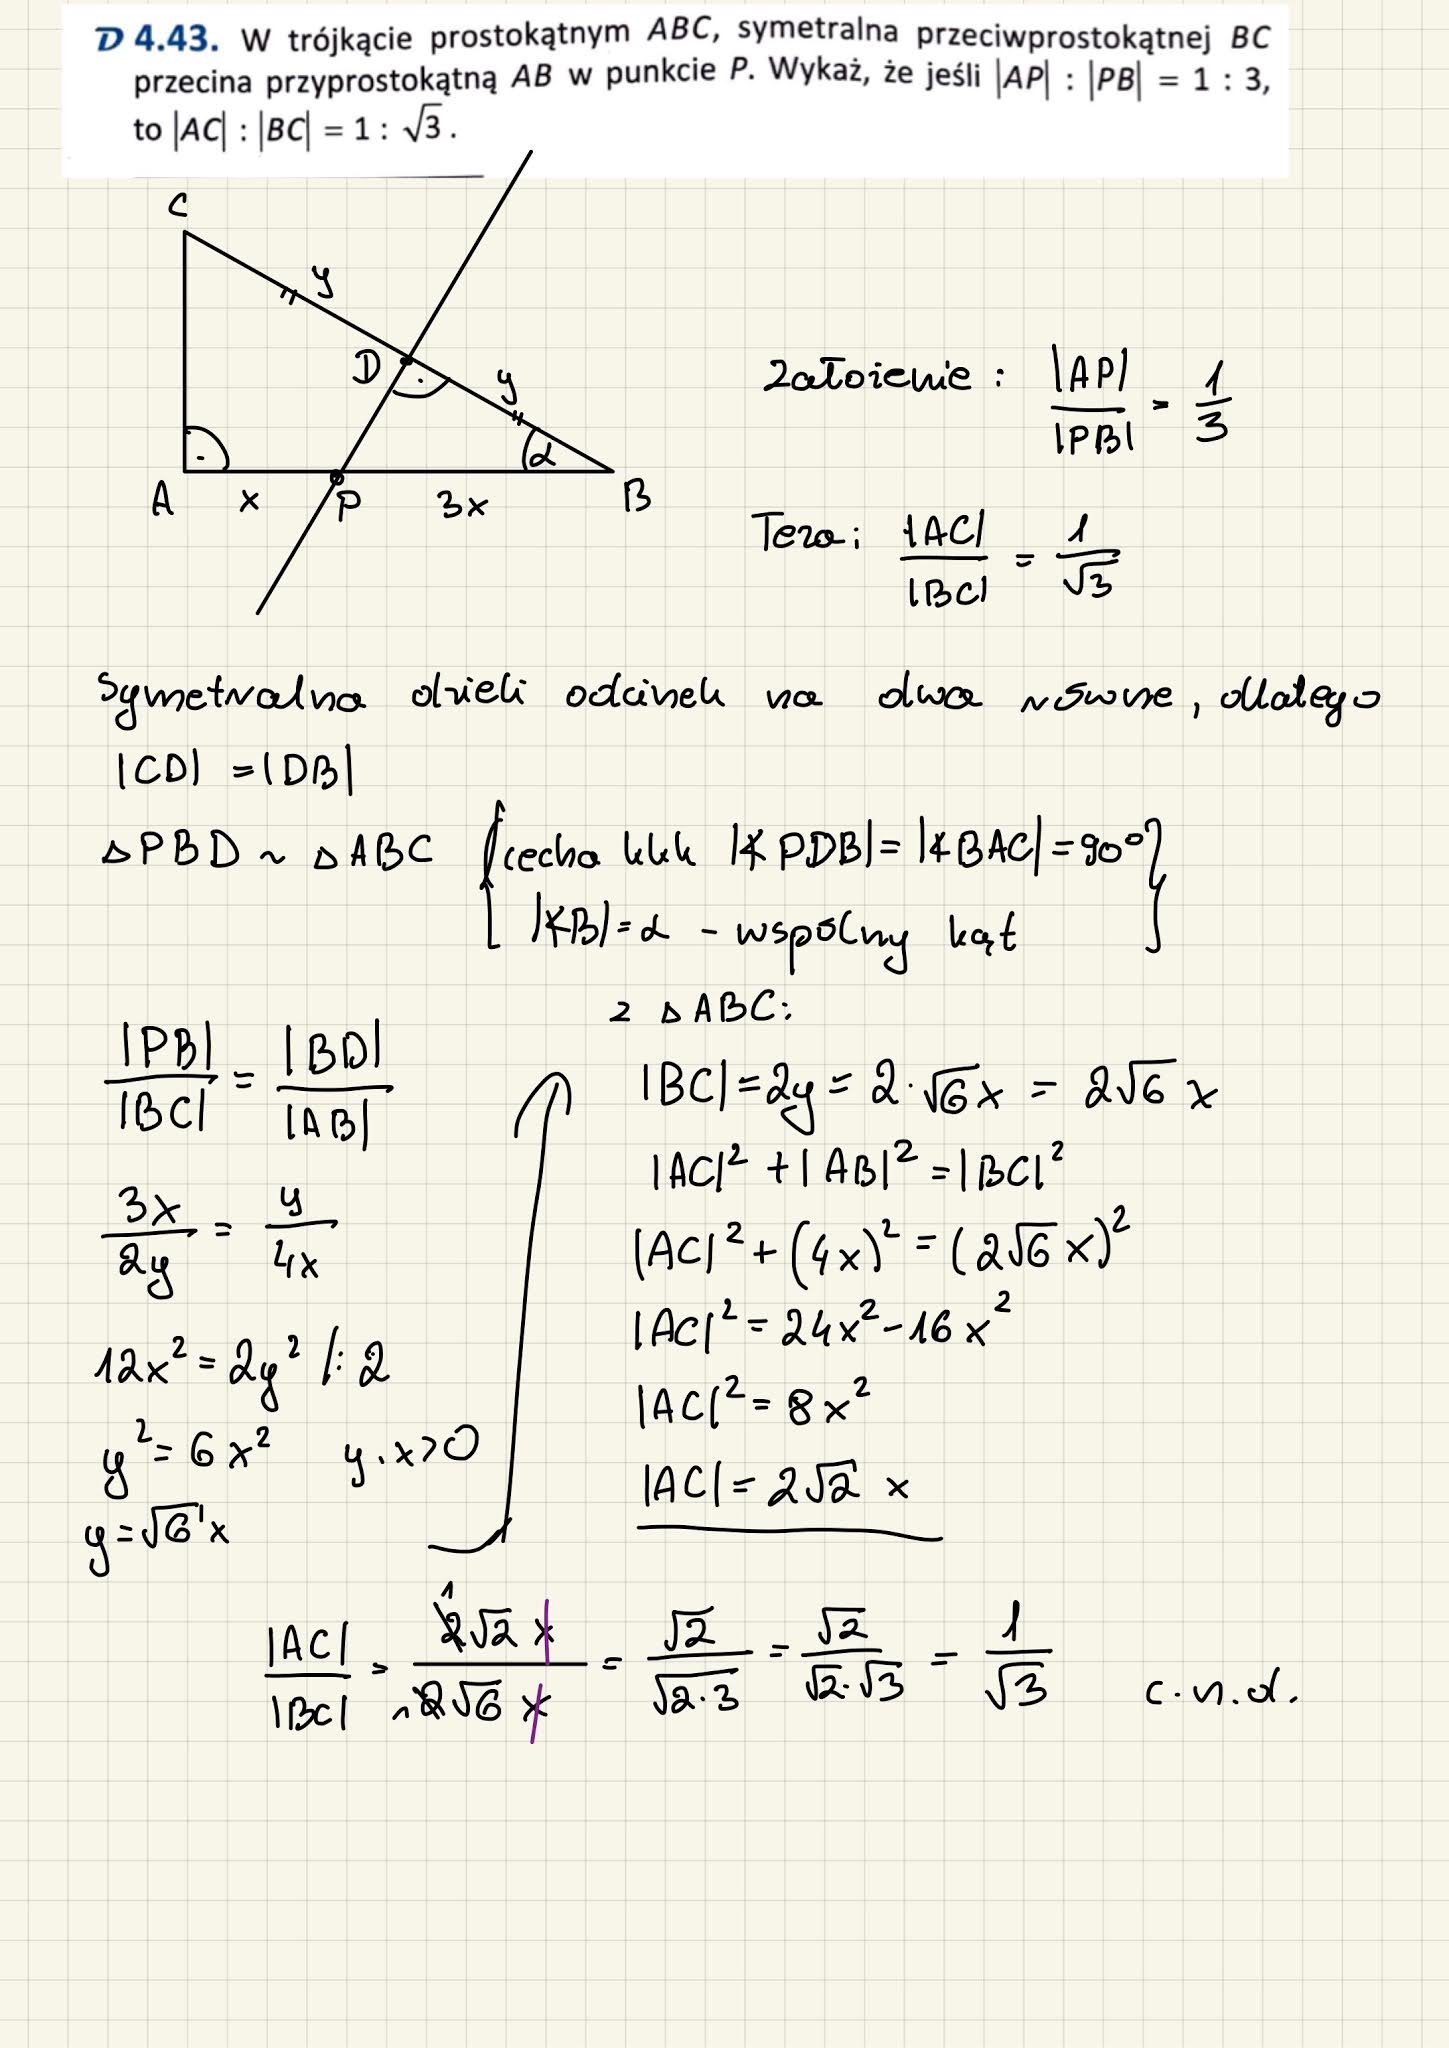 D 4.43. W trójkącie prostokątnym ABC, symetralna przeciwprostokątnej BC
przecina przyprostokątną AB w punkcie P. Wykaż, że jeśli |AP| : |PB| = 1 : 3,
to |AC| : |BC| = 1 : √3.
C
y
D
y
α
A x P 3x B
Założenie : |AP|/|PB| = 1/3
Teza: |AC|/|BC| = 1/√3
Symetralna dzieli odcinek na dwa równe, dlatego
|CD| = |DB|
△PBD ~ △ABC [cecha kkk |∢PDB| = |∢BAC| = 90°
|∢B| = α - wspólny kąt]
|PB|/|BC| = |BD|/|AB|
3x/2y = y/4x
12x² = 2y² /: 2
y² = 6x² y, x > 0
y = √6 x
z △ABC:
|BC| = 2y = 2·√6x = 2√6 x
|AC|² + |AB|² = |BC|²
|AC|² + (4x)² = (2√6 x)²
|AC|² = 24x² - 16x²
|AC|² = 8x²
|AC| = 2√2 x
|AC|/|BC| = 2√2 x/2√6 x = √2/√2·3 = √2/√2·√3 = 1/√3 c.n.d.